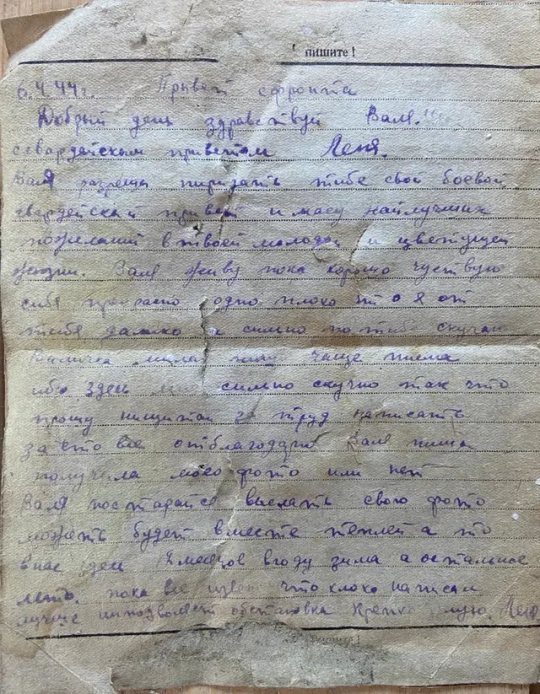 пишите!
6.4.44г. Привет с фронта
Добрый день здравствуй Валя!!
с гвардейским приветом Леня.
Валя разреши передать тибе свой боевой
гвардейский привет и масу найлучших
пожеланий в твоей молодой и цветущей
жизни. Валя живу пока хорошо чуствую
себя прекрасно одно плохо што я от
тебя далико и сильно по тибе скучаю
милая пиши чаще писма
ибо здесь сильно скучно так что
прошу нищитай за труд написать
за что все отблагодарю Валя пиши
получила моео фото или нет
Валя постарайся выслать свого фото
можить будет вместе теплей а то
внас здеси месецов вгоду зима а остальное
лето. пока все извени что плохо написал
лучше непозволяет обстановка Крепко целую Леня